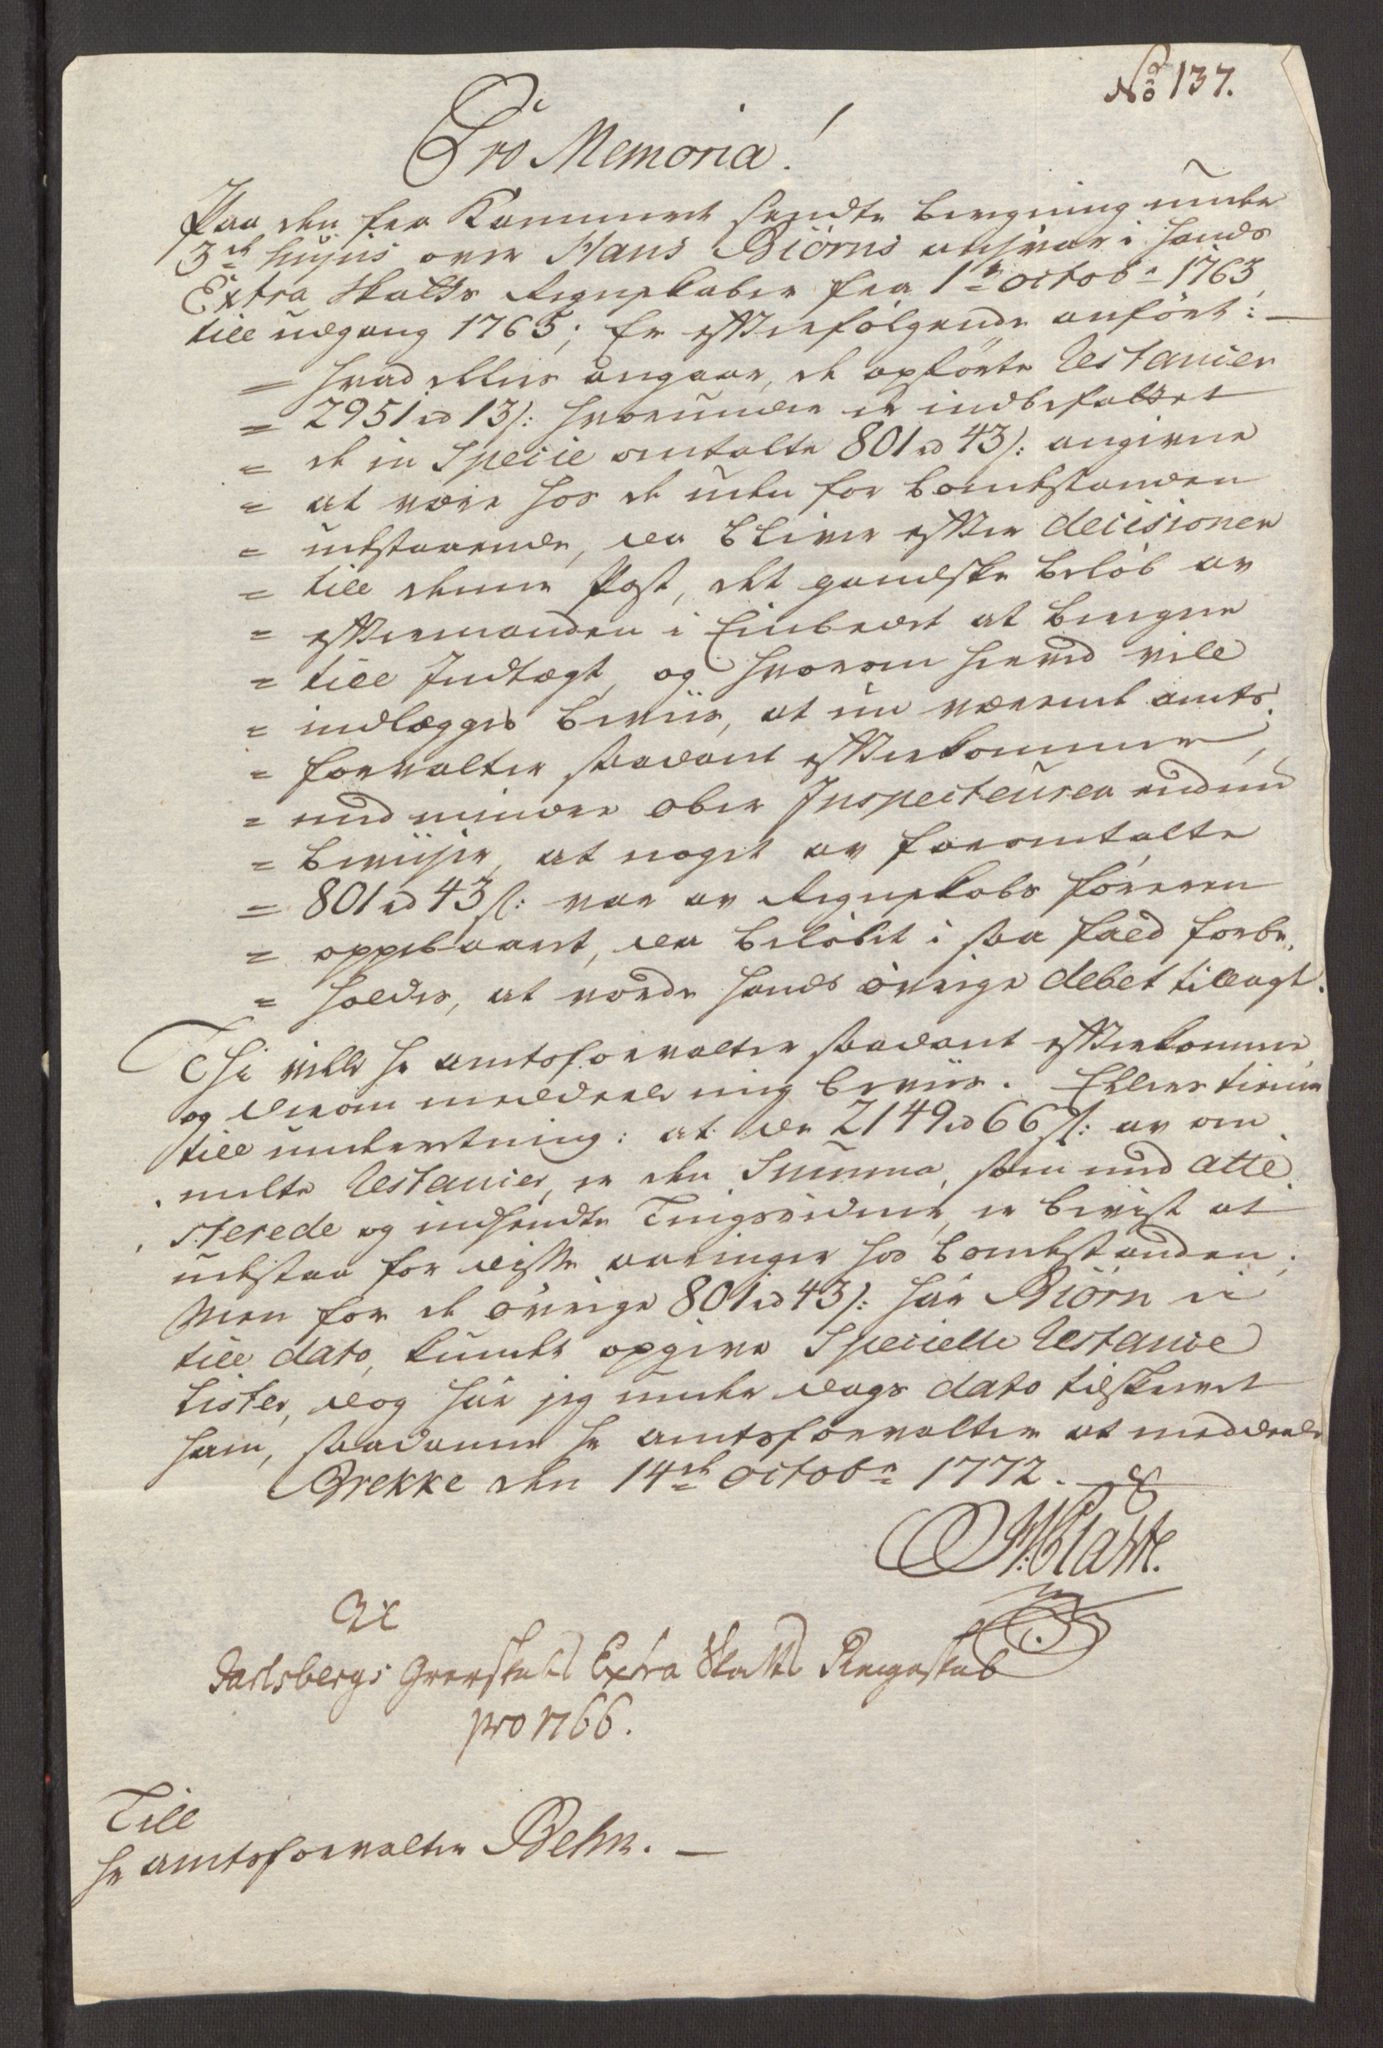 No 137.
Pro Memoria!
Paa den fra Kammeret sendte Beregning under
3de hujus over Hans Biørns ansvar i hands
Extra Skatts Regnskaber fra 1te octobr 1763
till udgang 1765; Er efterfølgende anført:
= hvad ellers angaar, de opførte Restancier
= 2951 rd 13 s: hvorunder er indbefattet
= de in Specie omtalte 801 rd 43 s: angivne
= at være hos de uden for bondestanden
= udestaaende, da bliver efter decisionen
= till denne Post, det gandske beløb av
= eftermanden i Embedet at beregne
= till Indtægt, og hvorom herved vill
= indlægges beviis, at nu værende amts
= forvalter saadant efterkommer,
= med mindre ober Inspecteuren endnu
= beviiser, at noget av foromtalte
= 801 rd 43 s: var av Regnskabs føreren
= oppebaaret, da beløbet i saa fald forbe-
= holdes, at vorde hands øvrige debet tillagt.
Thi ville hr amtsforvalter saadant efterkomme
og derom meddeele mig beviis. Ellers tiener
till underretning: at de 2149 rd 66 s: av om
melte Restancier, er den Summa, som med atte
sterede og indsendte Tingsvidner, er bevist at
udestaa for disse aaringer hos bondestanden;
Men for de øvrige 801 rd 43 s: har Biørn ei
till dato, kundet opgive Specielle Restance
Lister, dog har jeg under dags dato tilskrevet
ham, saadanne hr amtsforvalter at meddeele
Brekke den 14de octobr 1772.
Till
Jarlsbergs Grevskabs Extra Skatts Regnskab
pro 1766.
Till
hr amtsforvalter Behn.